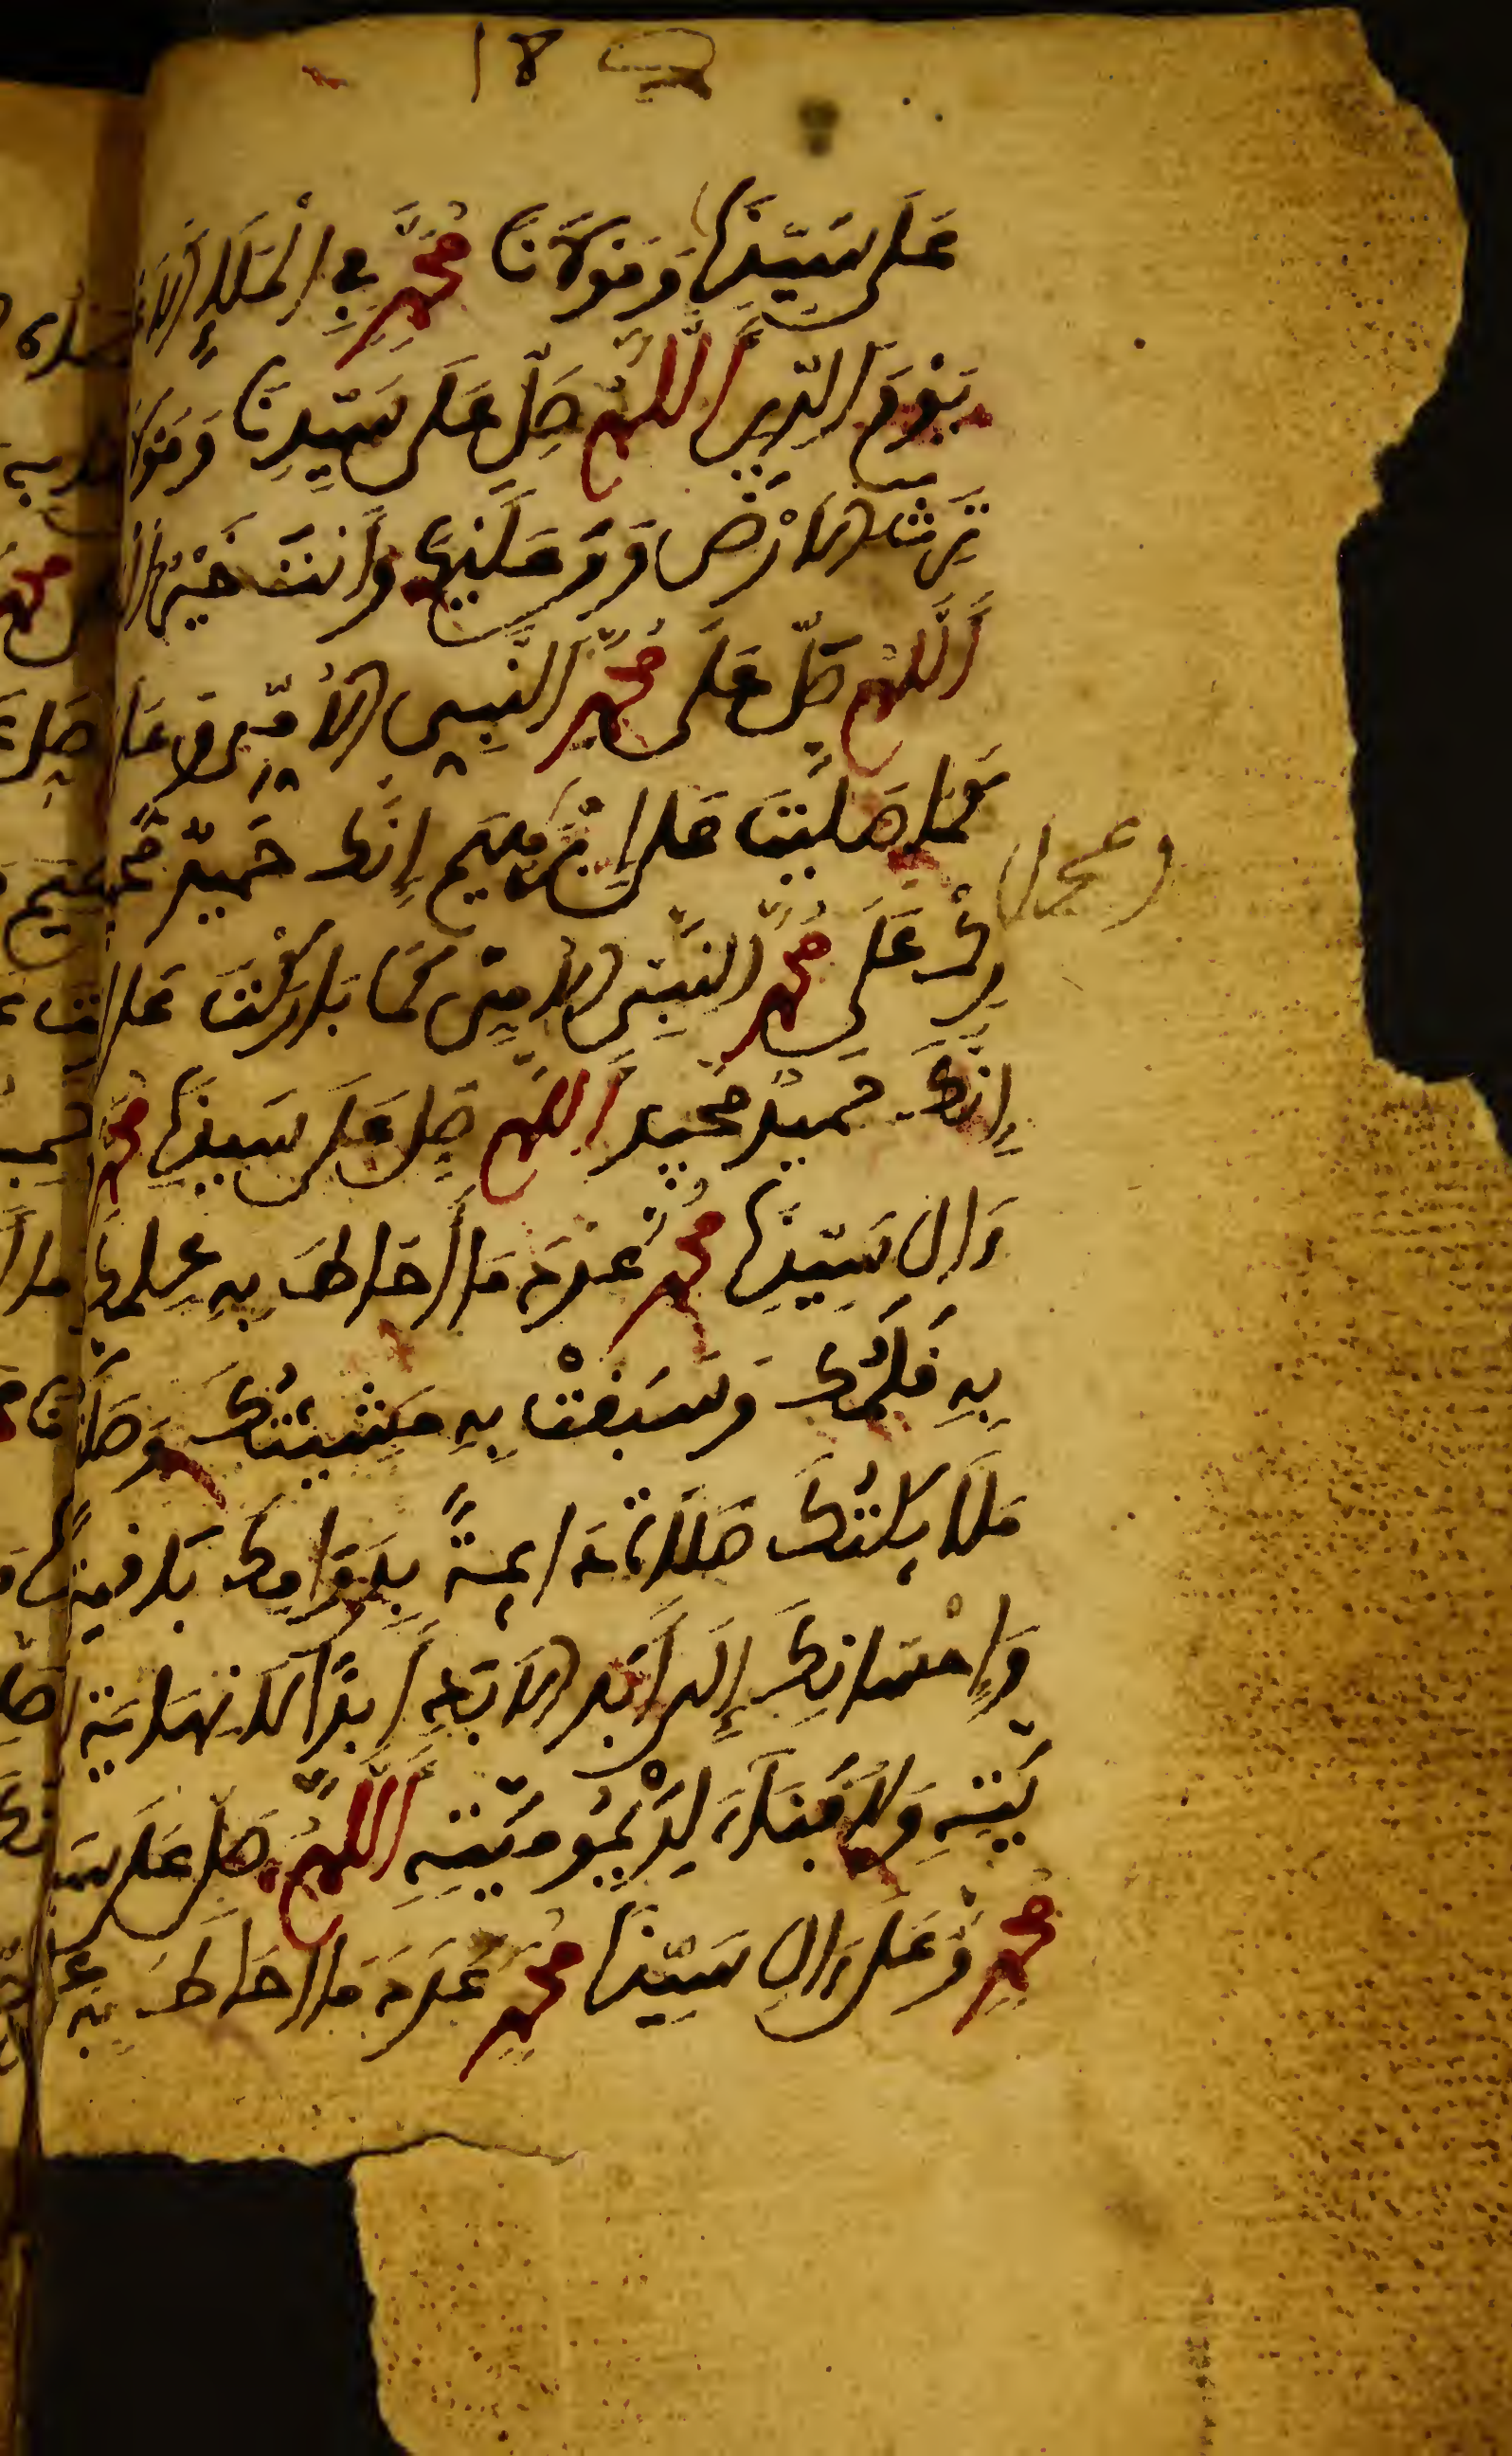 18
عَلَى سَيِّدِنَا وَمَوْلَانَا مُحَمَّدٍ فِي الْمَلَإِ
يَوْمَ الدِّينِ اَللَّهُمَّ صَلِّ عَلَى سَيِّدِنَا وَمَوْلَا
تَرِثَ الْاَرْضَ وَمَن عَلَيْهَا وَأَنتَ خَيْرُ
اَللَّهُمَّ صَلِّ عَلَى مُحَمَّدٍ النَّبِيِّ الْأُمِّيِّ وَعَلَى
كَمَا صَلَّيْتَ عَلَى إِبْرَاهِيمَ إِنَّكَ حَمِيدٌ
رِكْ عَلَى مُحَمَّدٍ النَّبِيِّ الْأُمِّيِّ كَمَا بَارَكْتَ عَلَى
إِنَّكَ حَمِيدٌ مَجِيدٌ اَللَّهُمَّ صَلِّ عَلَى سَيِّدِنَا مُحَمَّدٍ
ءَالِ سَيِّدِنَا مُحَمَّدٍ عَدَدَ مَا أَحَاطَ بِهِ عِلْمُكَ
بِهِ قَلَمُكَ وَسَبَقَتْ بِهِ مَشِيئَتُكَ وَصَلَّتْ
مَلَائِكَتُكَ صَلَاةً دَائِمَةً بِدَوَامِكَ بَاقِيَةً
وَإِحْسَانِكَ إِلَى أَبَدِ الْأَبَدِ أَبَدًا لَا نِهَايَةَ
يَّتِهِ وَلَا فَنَاءَ لِدَيْمُومِيَّتِهِ اَللَّهُمَّ صَلِّ عَلَى سَيِّ
مُحَمَّدٍ وَعَلَى ءَالِ سَيِّدِنَا مُحَمَّدٍ عَدَدَ مَا أَحَاطَ بِهِ